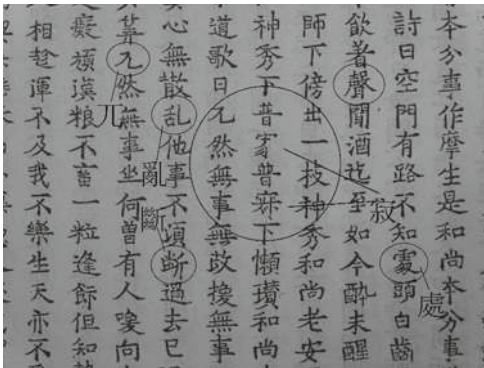 夲分事作摩生是和尚夲分事
詩曰空門有路不知䖏頭白齒
飲着聲聞酒迄至如今醉未醒
師下傍出一技神秀和尚老安
神秀下普寂普寂下懶瓚和尚
道歌曰兀然無事無改換無事
心無散乱他事不須断過去已
兀然無事坐何曽有人喚向
癡頑漢粮不畜一粒逢飰但知
相趁渾不及我不樂生天亦不
處
寂
亂
斷
兀